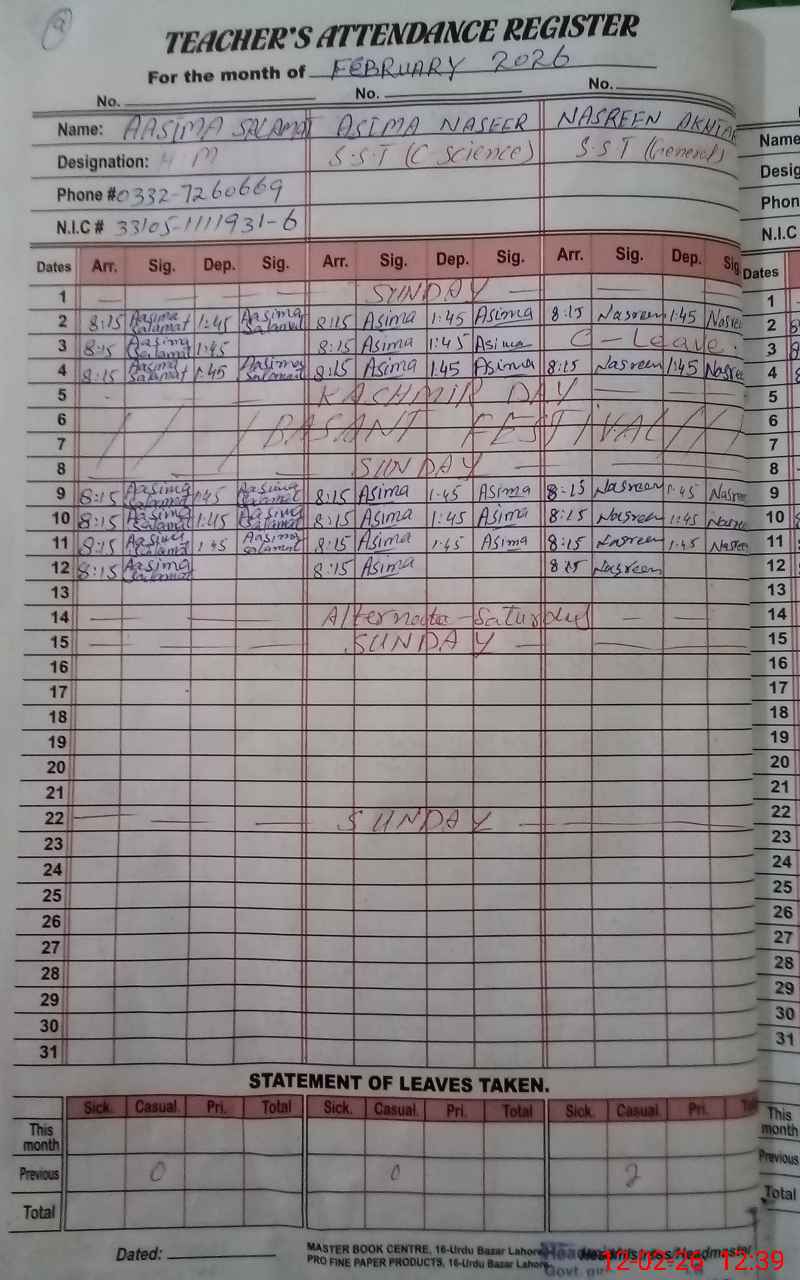 TEACHER'S ATTENDANCE REGISTER
For the month of FEBRUARY 2026
No. No. No.
Name: AASIMA SALAMAT ASIMA NASEER NASREEN AKHTAR Name
Designation: H M S.S.T (C Science) S.S.T (General) Desig
Phone # 0332-7260669 Phon
N.I.C # 33105-1111931-6 N.I.C
Dates Arr. Sig. Dep. Sig. Arr. Sig. Dep. Sig. Arr. Sig. Dep. Sig. Dates
1 SUNDAY 1
2 8:15 Aasima Salamat 1:45 Aasima Salamat 8:15 Asima 1:45 Asima 8:15 Nasreen 1:45 Nasree 2
3 8:15 Aasima Salamat 1:45 8:15 Asima 1:45 Asima C - Leave. 3
4 8:15 Aasima Salamat 1:45 Aasima Salamat 8:15 Asima 1:45 Asima 8:15 Nasreen 1:45 Nasree 4
5 KASHMIR DAY 5
6 BASANT FESTIVAL 6
7 7
8 SUNDAY 8
9 8:15 Aasima Salamat 1:45 Aasima Salamat 8:15 Asima 1:45 Asima 8:15 Nasreen 1:45 Nasree 9
10 8:15 Aasima Salamat 1:45 Aasima Salamat 8:15 Asima 1:45 Asima 8:15 Nasreen 1:45 Nasree 10
11 8:15 Aasima Salamat 1:45 Aasima Salamat 8:15 Asima 1:45 Asima 8:15 Nasreen 1:45 Nasree 11
12 8:15 Aasima Salamat 8:15 Asima 8:15 Nasreen 12
13 13
14 Alternate - Saturday 14
15 SUNDAY 15
16 16
17 17
18 18
19 19
20 20
21 21
22 SUNDAY 22
23 23
24 24
25 25
26 26
27 27
28 28
29 29
30 30
31 31
STATEMENT OF LEAVES TAKEN.
Sick. Casual. Pri. Total Sick. Casual. Pri. Total Sick. Casual. Pri.
This month This month
Previous 0 0 2 Previous
Total Total
Dated: MASTER BOOK CENTRE, 16-Urdu Bazar Lahore
PRO FINE PAPER PRODUCTS, 16-Urdu Bazar Lahore
Headmistress/Headmaster
12-02-26 12:39